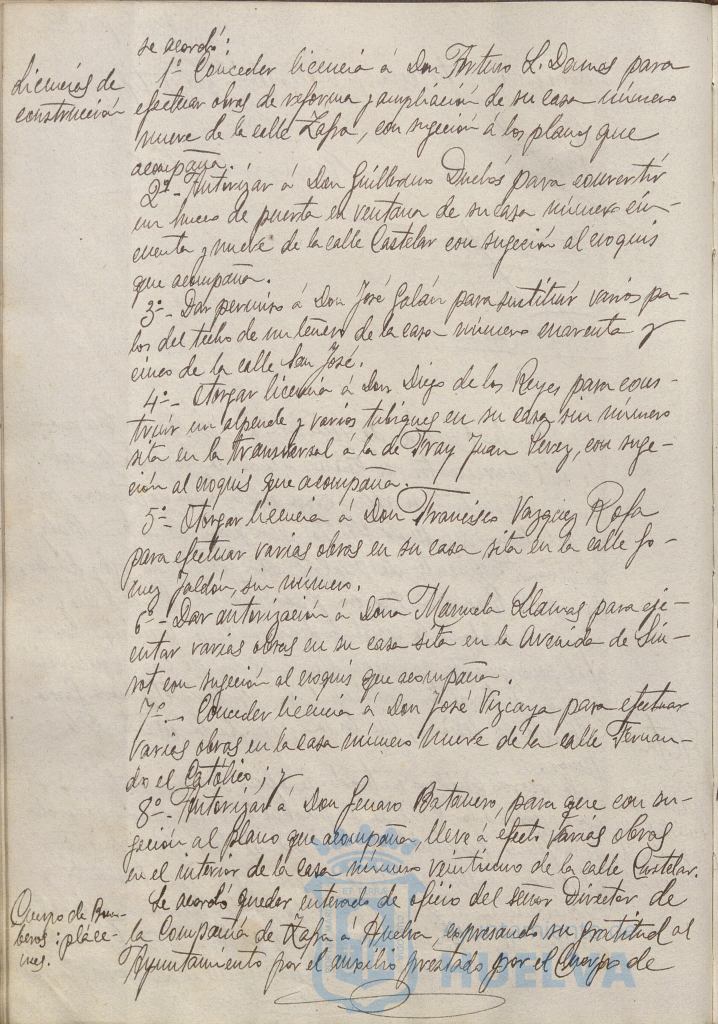 se acordó:
Licencias de
construcción
1º Conceder licencia á Don Arturo L. Damas para
efectuar obras de reforma y ampliación de su casa número
nueve de la calle Zafra, con sugeción á los planos que
acompaña.
2º.- Autorizar á Don Guillermo Duclós para convertir
un hueco de puerta en ventana de su casa número cin-
cuenta y nueve de la calle Castelar con sugeción al croquis
que acompaña.
3º.- Dar permiso á Don José Galán para sustituir varios pa-
los del techo de un de la casa número cuarenta y
cinco de la calle San José.
4º.- Otorgar licencia á Don Diego de los Reyes para cons-
truir un alpende y varios tabiques en su casa sin número
sita en la transversal á la de Fray Juan Perez, con suge-
ción al croquis que acompaña.
5º- Otorgar licencia á Don Francisco Vazquez Rofa
para efectuar varias obras en su casa sita en la calle Go-
mez Jaldón, sin número.
6º- Dar autorización á Doña Manuela Llamas para eje-
cutar varias obras en su casa sita en la Avenida de Sin-
rot con sugeción al croquis que acompaña.
7º.- Conceder licencia á Don José Vizcaya para efectuar
varias obras en la casa número nueve de la calle Fernan-
do el Católico; y
8º- Autorizar á Don Genaro Batanero, para que con su-
geción al plano que acompaña, lleve á efecto varias obras
en el interior de la casa número veintiuno de la calle Castelar.
Cuerpo de Bom-
beros: pláce-
mes.
Se acordó quedar enterado de oficio del señor Director de
la Compañía de Zafra á Huelva, expresando su gratitud al
Ayuntamiento por el auxilio prestado por el Cuerpo de
HUELVA